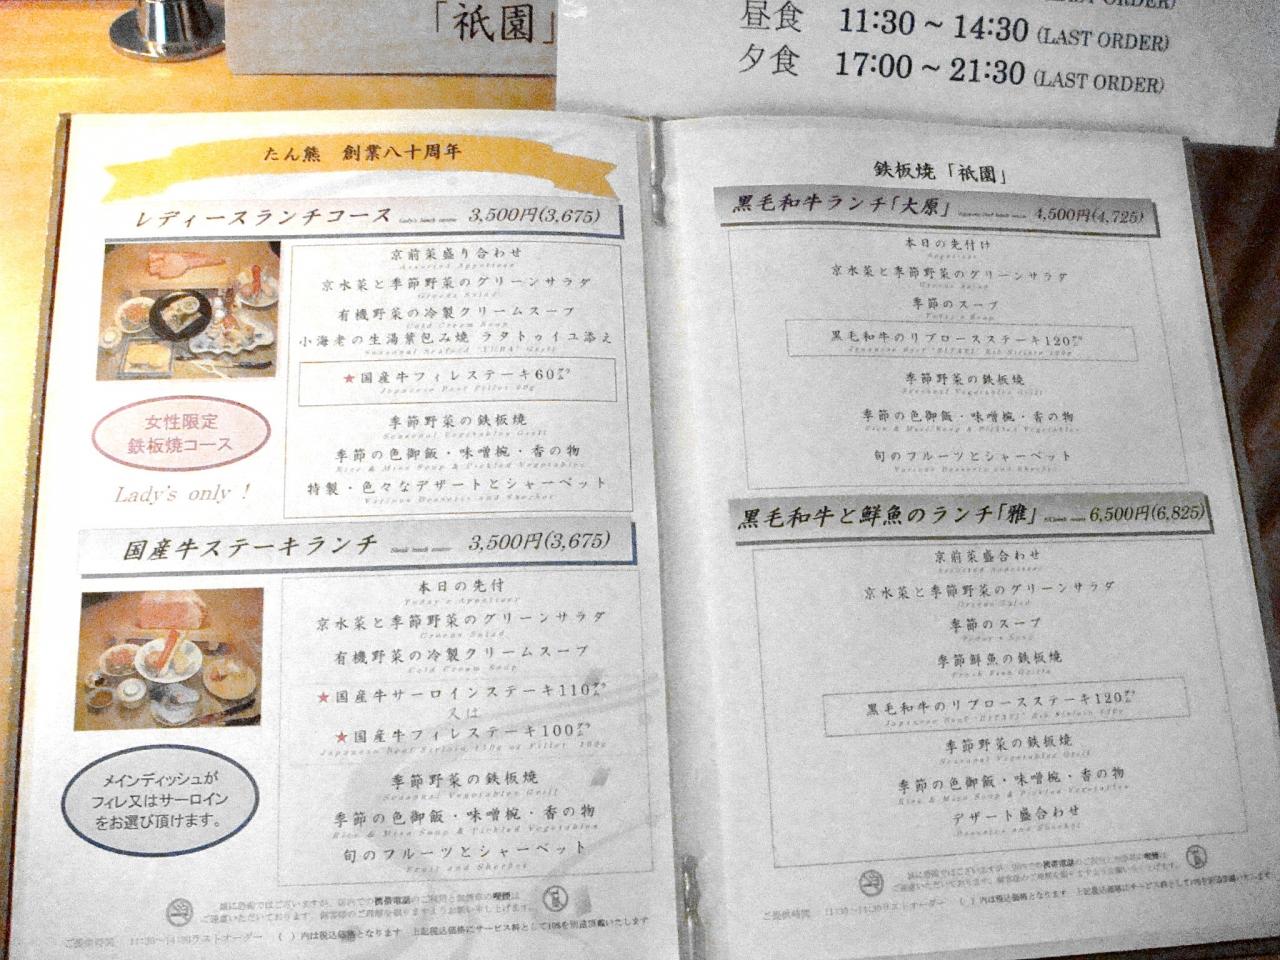 「祇園」
昼食 11:30 ~ 14:30 (LAST ORDER)
夕食 17:00 ~ 21:30 (LAST ORDER)
たん熊 創業八十周年
レディースランチコース Lady's lunch course 3,500円(3,675)
京前菜盛り合わせ
Assorted Appetizer
京水菜と季節野菜のグリーンサラダ
Greens Salad
有機野菜の冷製クリームスープ
Cold Cream Soup
小海老の生湯葉包み焼 ラタトゥイユ添え
Seasonal Seafood "YUBA" Grill
★国産牛フィレステーキ60グラム
Japanese Beef Fillet 60g
季節野菜の鉄板焼
Seasonal Vegetables Grill
季節の色御飯・味噌椀・香の物
Rice & Miso Soup & Pickled Vegetables
特製・色々なデザートとシャーベット
Various Desserts and Sherbet
女性限定
鉄板焼コース
Lady's only !
国産牛ステーキランチ Steak lunch course 3,500円(3,675)
本日の先付
Today's Appetizer
京水菜と季節野菜のグリーンサラダ
Greens Salad
有機野菜の冷製クリームスープ
Cold Cream Soup
★国産牛サーロインステーキ110グラム
又は
★国産牛フィレステーキ100グラム
Japanese Beef Sirloin 110g or Fillet 100g
季節野菜の鉄板焼
Seasonal Vegetables Grill
季節の色御飯・味噌椀・香の物
Rice & Miso Soup & Pickled Vegetables
旬のフルーツとシャーベット
Fruit and Sherbet
メインディッシュが
フィレ又はサーロイン
をお選び頂けます。
誠に恐縮ではございますが、店内での携帯電話のご利用と喫煙は
ご遠慮いただいております。御客様のご理解を賜りますようお願い申し上げます。
ご提供時間 11:30~14:30ラストオーダー ( )内は税込価格となります 上記税込価格にサービス料として10%を別途頂戴いたします
鉄板焼「祇園」
黒毛和牛ランチ「大原」 4,500円(4,725)
本日の先付け
Appetizer
京水菜と季節野菜のグリーンサラダ
Greens Salad
季節のスープ
Today's Soup
黒毛和牛のリブロースステーキ120グラム
季節野菜の鉄板焼
Seasonal Vegetables Grill
季節の色御飯・味噌椀・香の物
Rice & Miso Soup & Pickled Vegetables
旬のフルーツとシャーベット
Various Desserts and Sherbet
黒毛和牛と鮮魚のランチ「雅」 6,500円(6,825)
京前菜盛合わせ
Assorted Appetizer
京水菜と季節野菜のグリーンサラダ
Greens Salad
季節のスープ
Today's Soup
季節鮮魚の鉄板焼
Fresh Fish Grille
黒毛和牛のリブロースステーキ120グラム
季節野菜の鉄板焼
Seasonal Vegetables Grill
季節の色御飯・味噌椀・香の物
Rice & Miso Soup & Pickled Vegetables
デザート盛合わせ
Desserts and Sherbet
誠に恐縮ではございますが、店内での携帯電話のご利用と喫煙は
ご遠慮いただいております。御客様のご理解を賜りますようお願い申し上げます。
ご提供時間 11:30~14:30ラストオーダー ( )内は税込価格となります 上記税込価格にサービス料として10%を別途頂戴いた